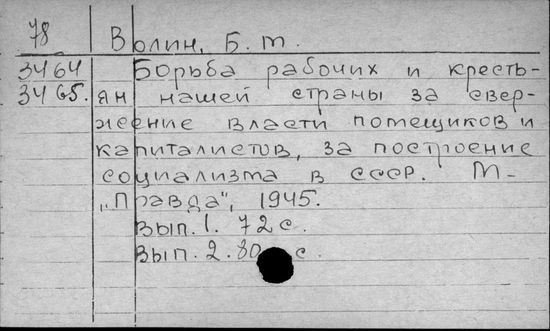 78
Волин, Б. М.
3464 Борьба рабочих и кресть-
3465. ян нашей страны за свер-
жение власти помещиков и
капиталистов, за построение
социализма в СССР. М-
„Правда", 1945.
Вып. 1. 72 с.
Вып. 2. 80 с.